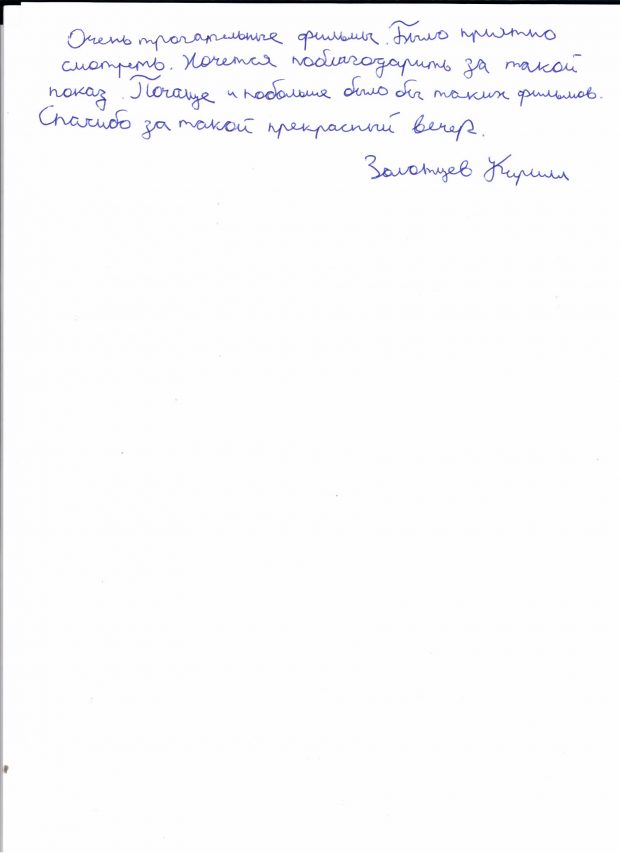 Очень трогательные фильмы. Было приятно
смотреть. Хочется поблагодарить за такой
показ. Почаще и побольше было бы таких фильмов.
Спасибо за такой прекрасный вечер.
Золотцев Кирилл